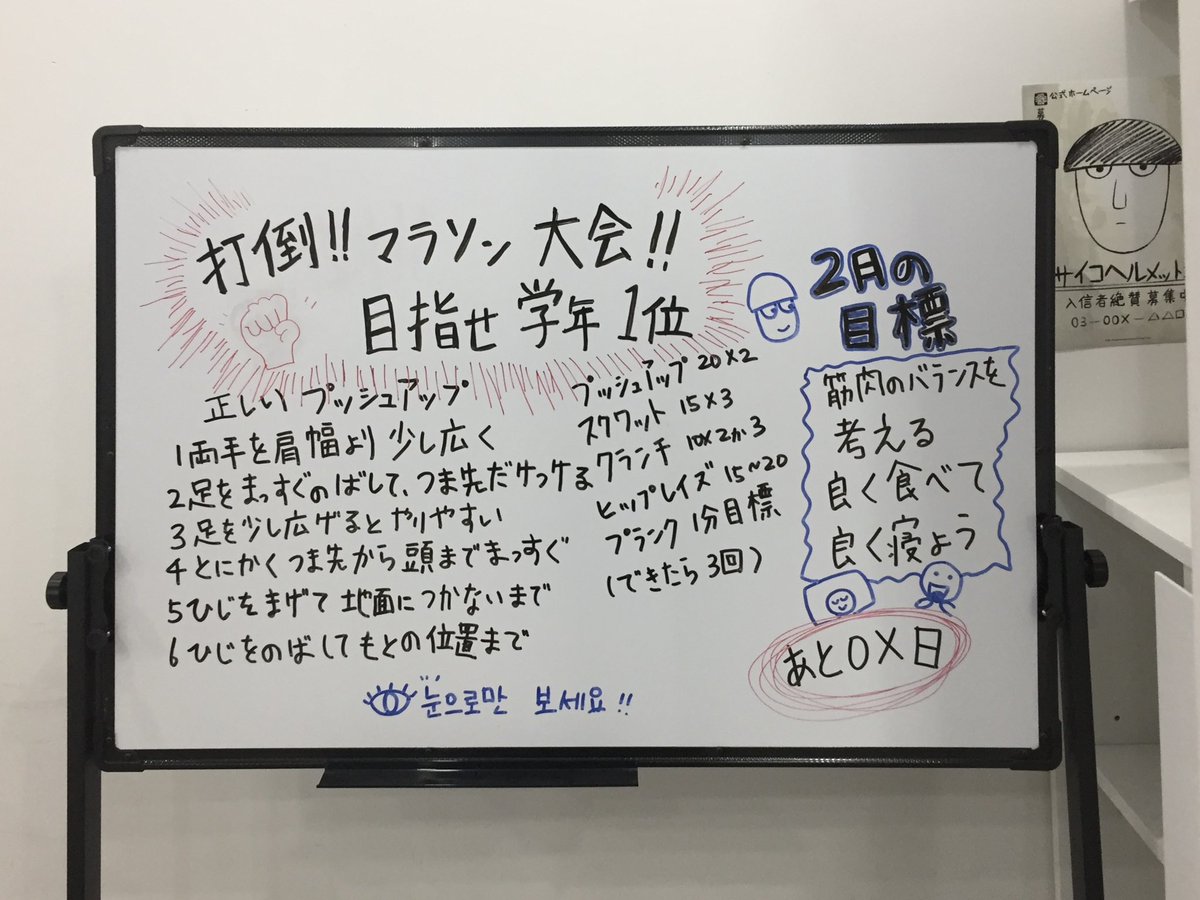 打倒!! マラソン 大会!!
目指せ 学年 1位
正しい プッシュアップ
1両手を肩幅より 少し広く
2足をまっすぐのばして、つま先だけつける
3足を少し広げるとやりやすい
4とにかくつま先から頭までまっすぐ
5ひじをまげて 地面につかないまで
6ひじをのばしてもとの位置まで
プッシュアップ 20×2
スクワット 15×3
クランチ 10×2か3
ヒップレイズ 15~20
プランク 1分目標
(できたら 3回)
2月の
目標
筋肉のバランスを
考える
良く食べて
良く寝よう
あと0×日
눈으로만 보세요!!
公式ホームページ
サイコヘルメット
入信者絶賛募集中
03-00×-△△□